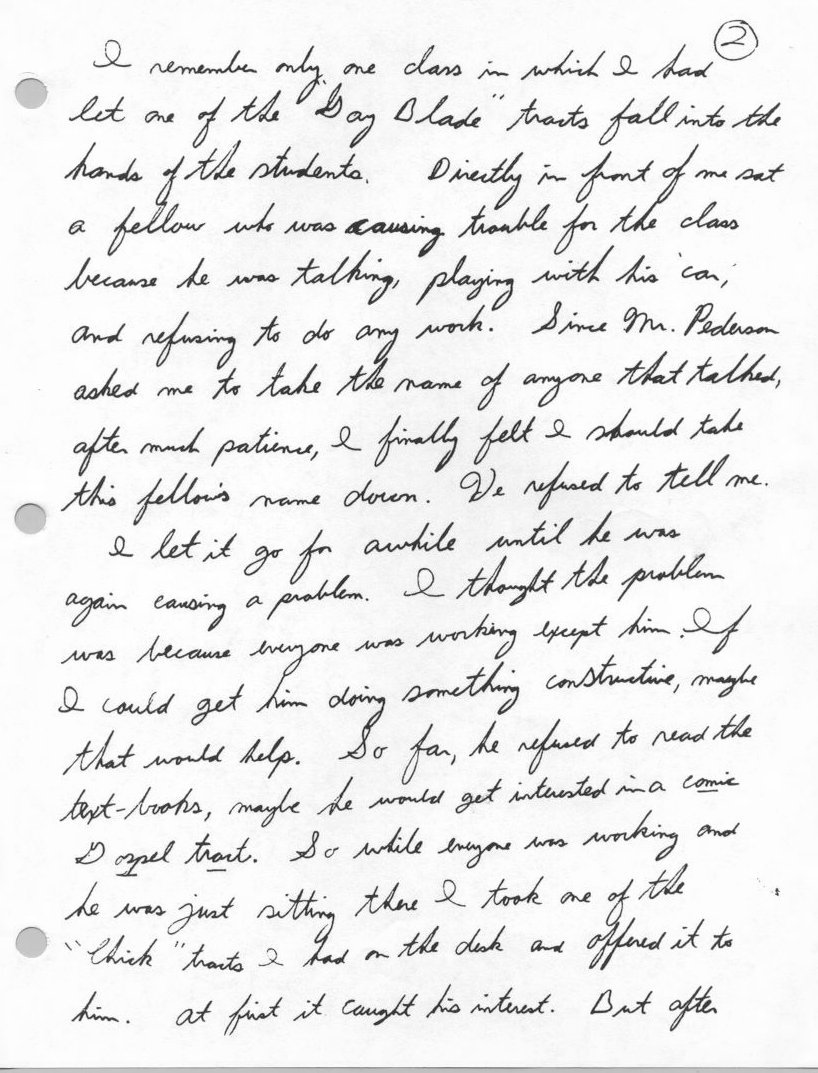 2
I remember only one class in which I had
let one of the "Gay Blade" tracts fall into the
hands of the students. Directly in front of me sat
a fellow who was causing trouble for the class
because he was talking, playing with his 'car,'
and refusing to do any work. Since Mr. Pederson
asked me to take the name of anyone that talked,
after much patience, I finally felt I should take
this fellow's name down. He refused to tell me.
I let it go for awhile until he was
again causing a problem. I thought the problem
was because everyone was working except him. If
I could get him doing something constructive, maybe
that would help. So far, he refused to read the
text-books, maybe he would get interested in a comic
Gospel tract. So while everyone was working and
he was just sitting there I took one of the
"Chick" tracts I had on the desk and offered it to
him. At first it caught his interest. But after